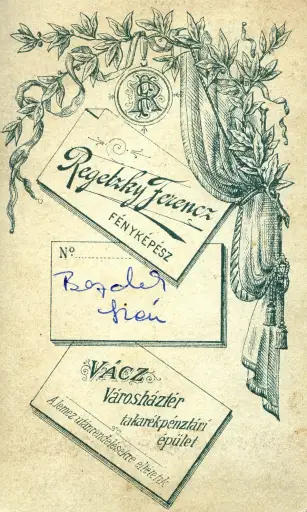 Regetzky Ferencz
FÉNYKÉPÉSZ
Nº
VÁCZ
Városháztér
takarékpénztári
épület
A lemez utánrendelésekre eltétetik.